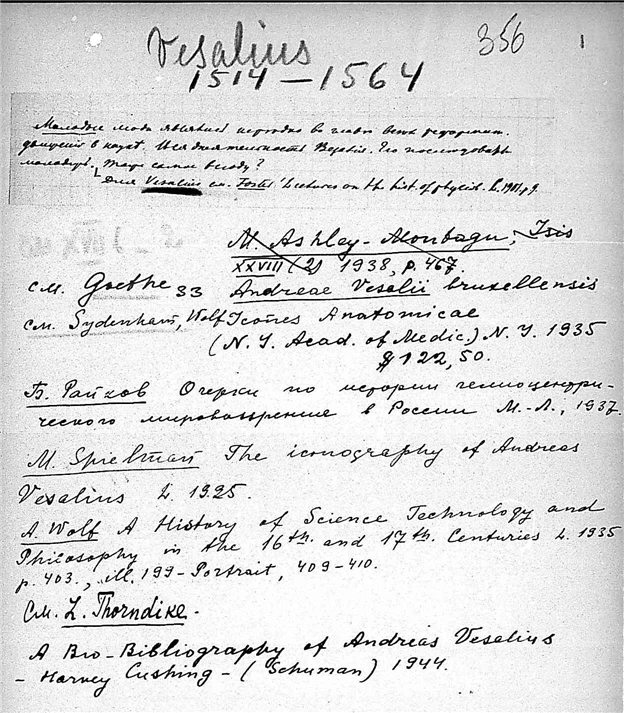 Vesalius
356
1514 — 1564
Молодые люди являются нередко во главе всех реформат.
движений в науке. Вся деятельность Везалия. Его последователь
молодёжь. Такое самое всюду?
Для Vesalius см. Foster Lectures on the hist of physiol. L. 1901. p. 9.
M. Ashley-Montagu, Isis
XXVIII (2) 1938, p. 467.
см. Goethe 33 Andreae Vesalii bruxellensis
см. Sydenham, Wolf Icones Anatomicae
(N. Y. Acad. of Medic.) N. Y. 1935
$122,50.
Б. Райков Очерки по истории гелиоцентри-
ческого мировоззрение в России М.-Л., 1937.
M. Spielman The iconography of Andreas
Vesalius L. 1925.
A. Wolf A History of Science Technology and
Philosophy in the 16th. and 17th. Centuries L. 1935
p. 403., ill. 199-Portrait, 409-410.
см. L. Thorndike.
A Bio-Bibliography of Andreas Vesalius
- Harvey Cushing - (Schuman) 1944.